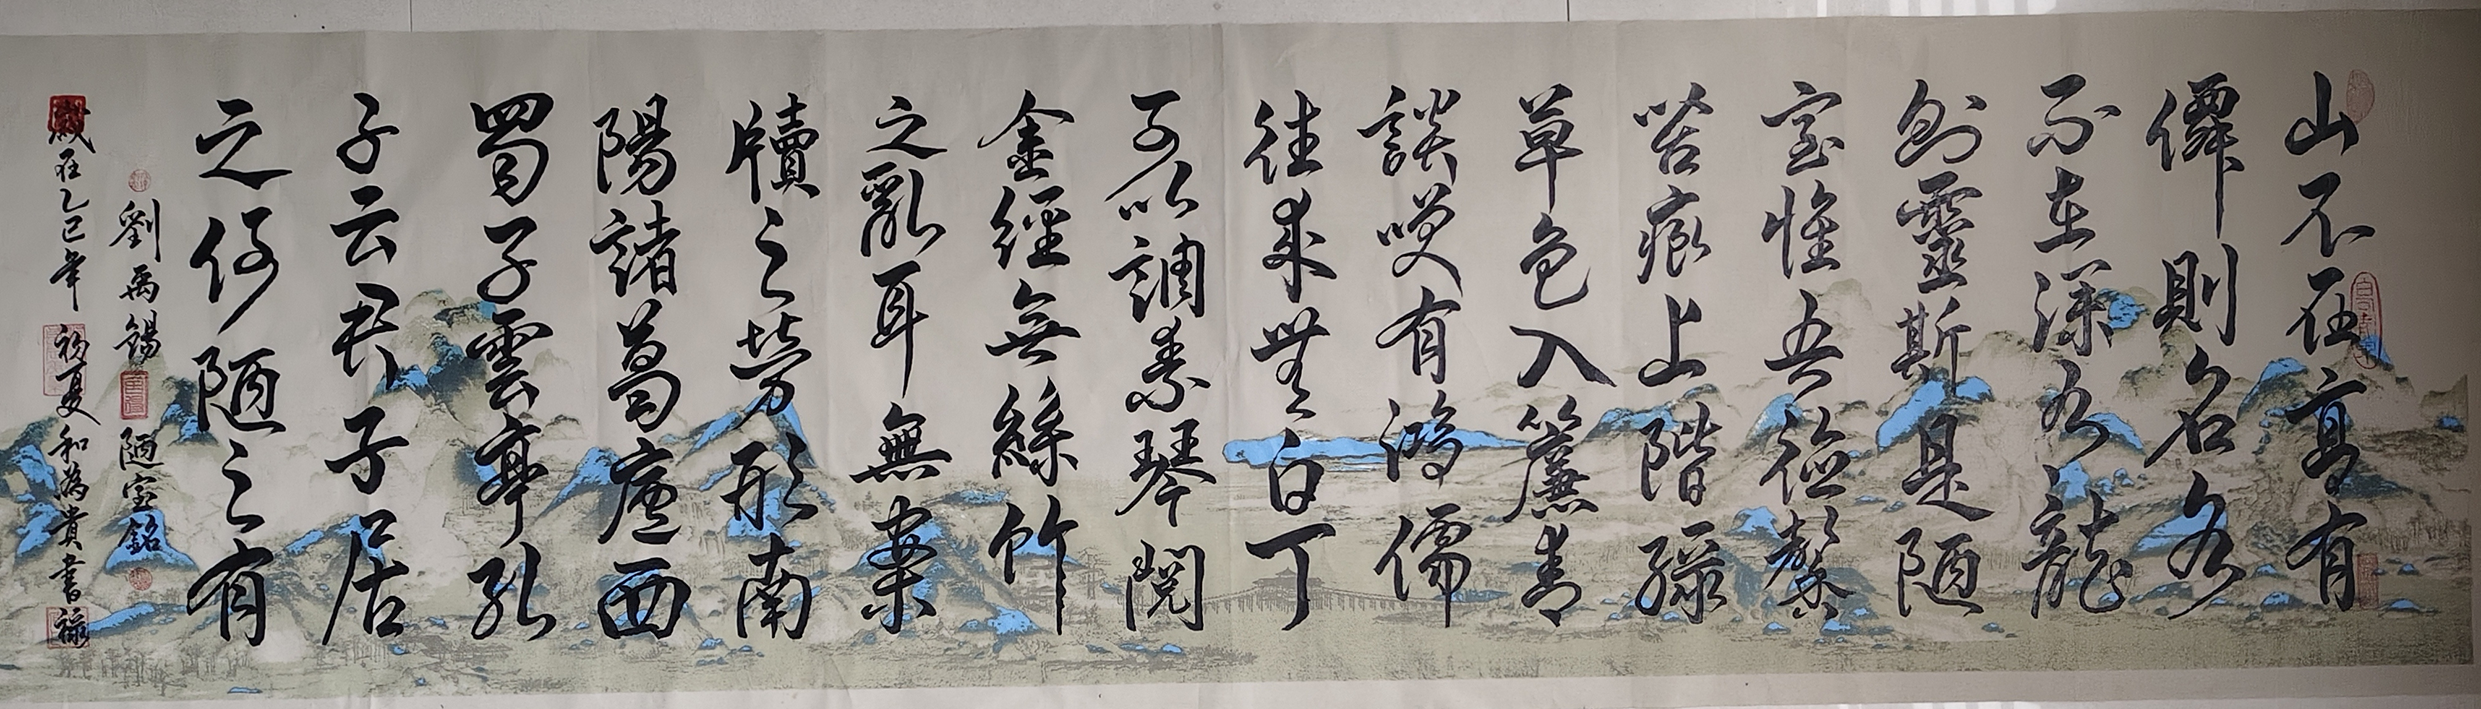 山不在高有
僊則名水
不在深有龍
則靈斯是陋
室惟吾德馨
苔痕上階綠
草色入簾青
談咲有鴻儒
往來無白丁
可以調素琴閱
金經無絲竹
之亂耳無案
牘之勞形南
陽諸葛廬西
蜀子雲亭孔
子云君子居
之何陋之有
劉禹錫 陋室銘
歲在乙巳年 初夏和為貴書 禄